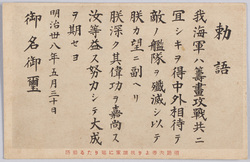 勅語
我海軍ハ籌畫攻戰共ニ
宜シキヲ得中外相待テ
敵ノ艦隊ヲ殲滅シ以テ
朕カ望ニ副ヘリ
朕深ク其偉功ヲ嘉尚ス
汝等益ス努力シテ大成
ヲ期セヨ
明治卅八年五月三十日
御名御璽